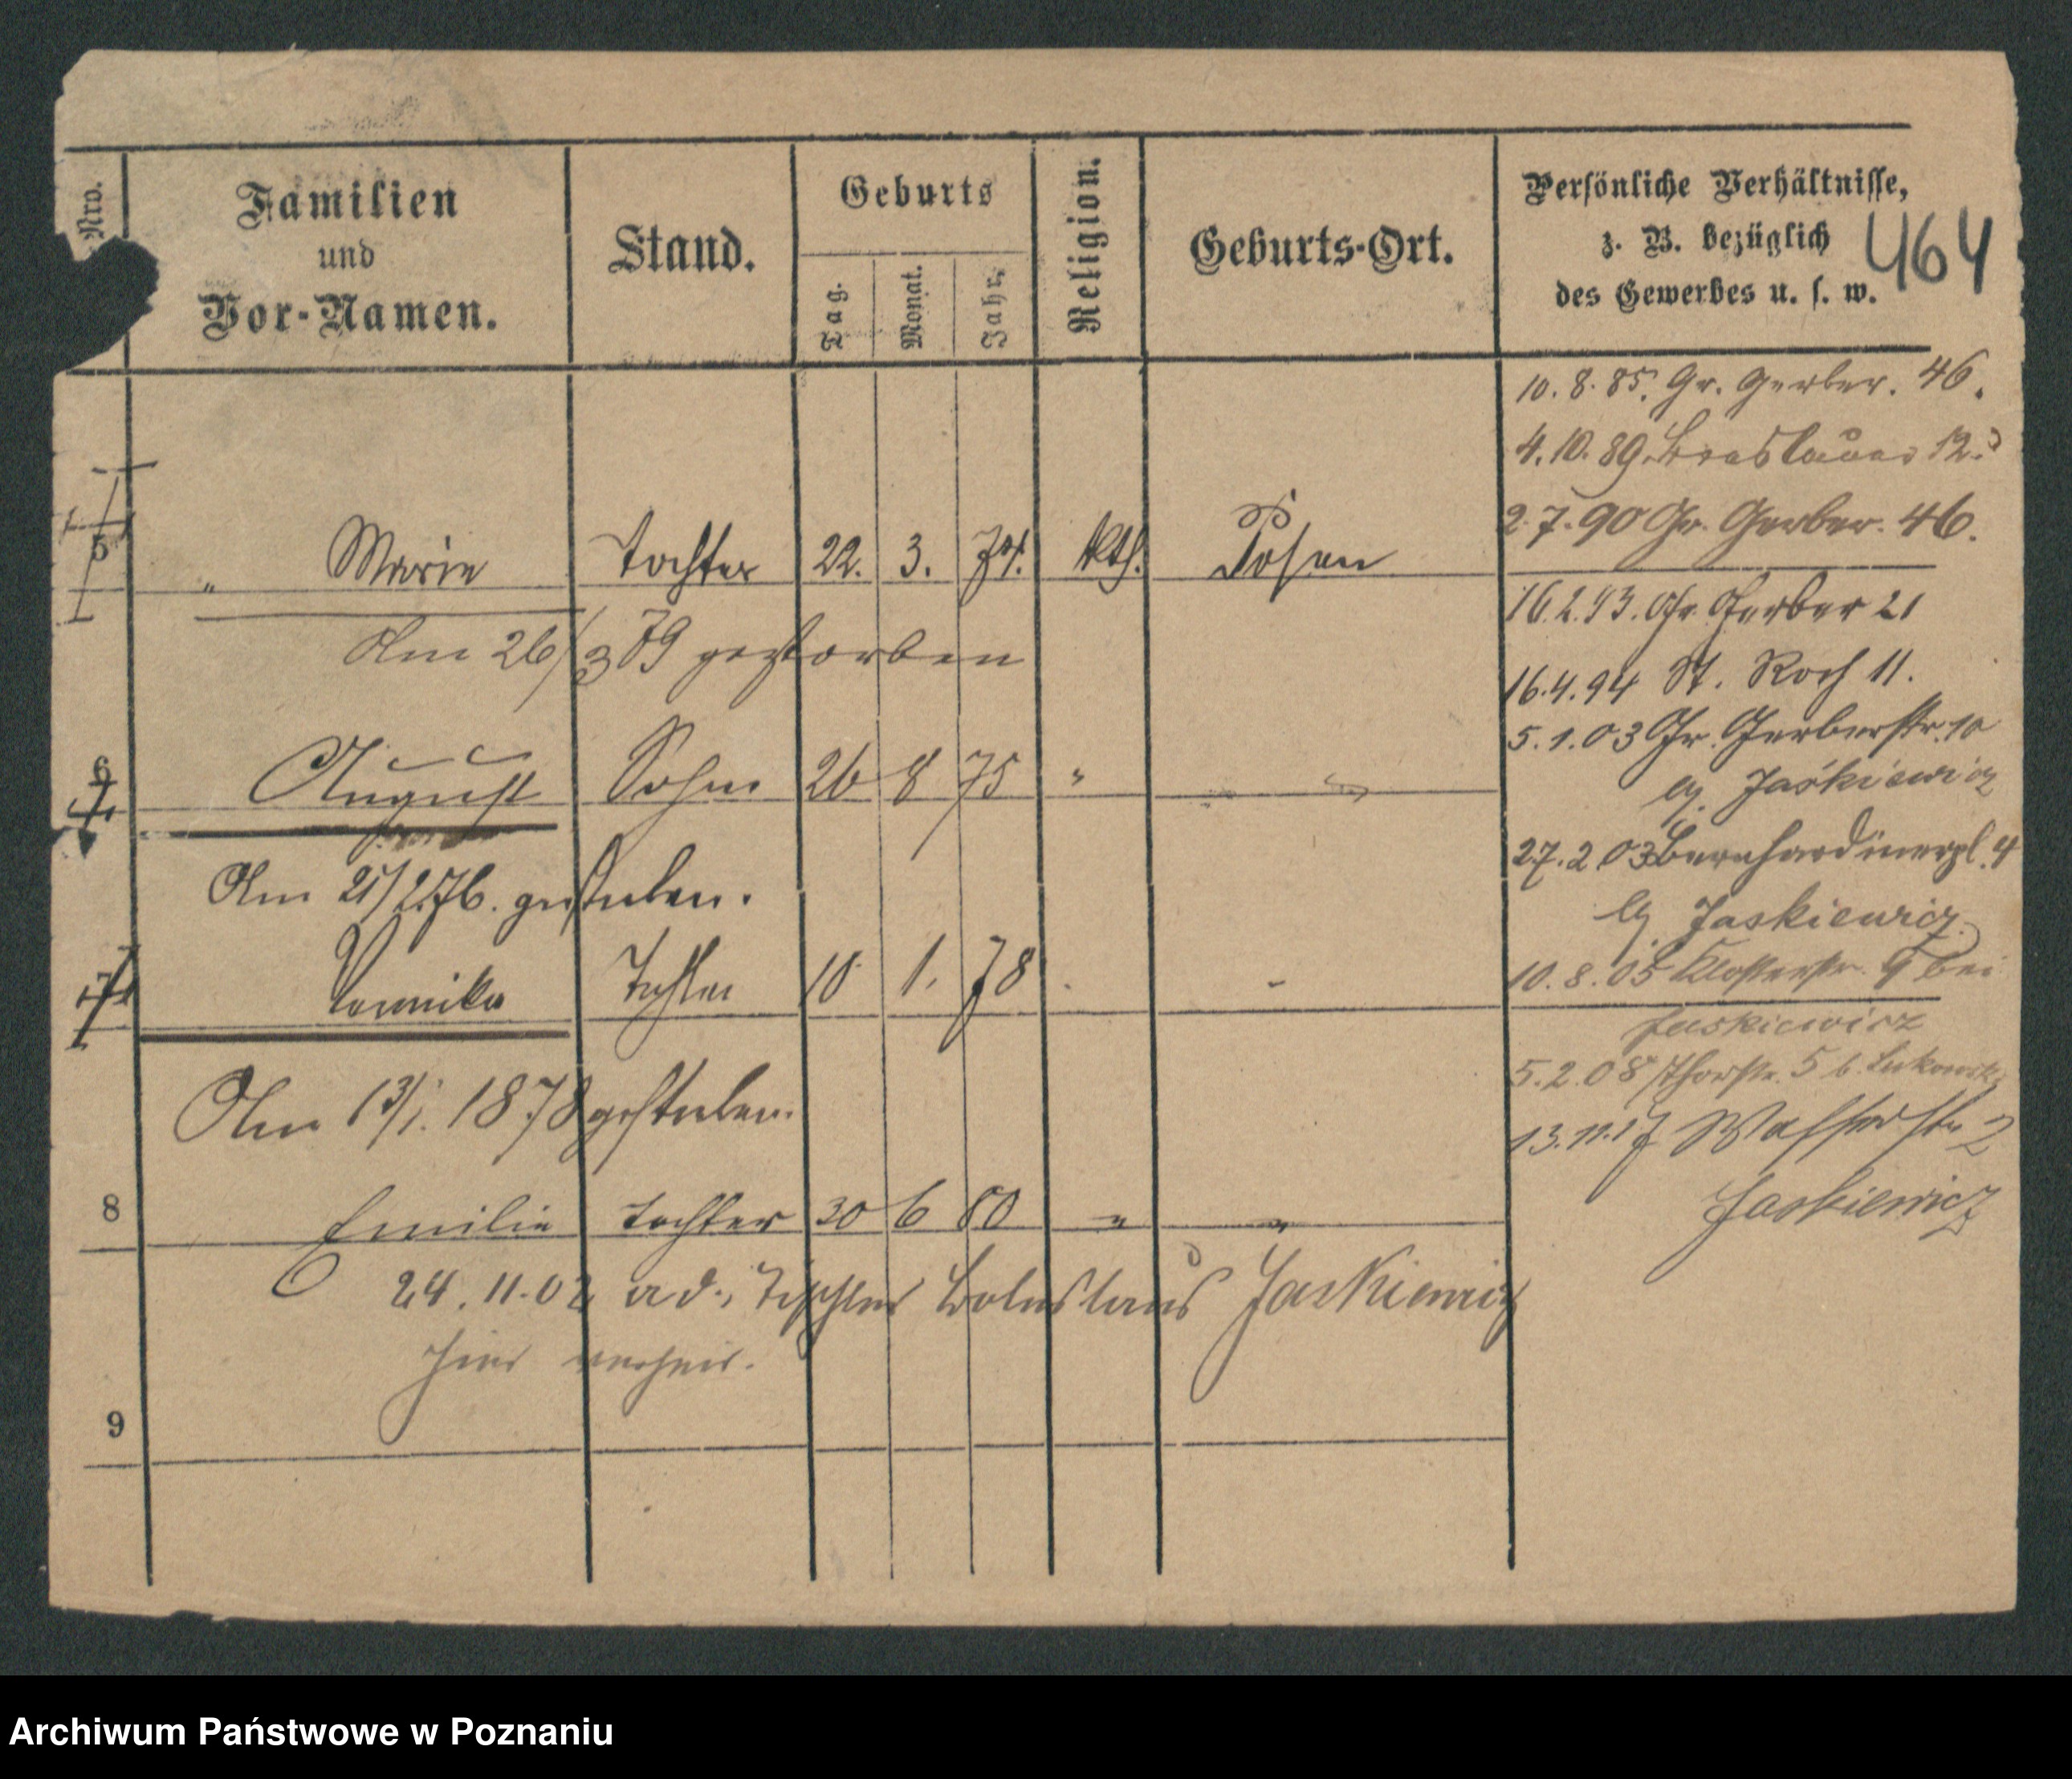 Nro.
Familien
und
Vor-Namen.
Stand.
Geburts
Tag.
Monat.
Jahr.
Religion.
Geburts-Ort.
Persönliche Verhältnisse,
z. B. bezüglich
des Gewerbes u. s. w.
464
10. 8. 85. Gr. Gerber. 46.
4. 10. 89 Breslauer 12.
2. 7. 90 Gr. Gerber. 46.
5 " Marie Tochter 22. 3. 74. kth. Posen
16. 2. 93. Gr. Gerber 21
Am 26/3 79 gestorben
16. 4. 94 St. Roch 11.
5. 1. 03 Gr. Gerberstr. 10
6 August Sohn 26 8 75 "
Jaśkiewicz
27. 2. 03 Bernhardinerpl. 4
Am 21/2.76. gestorben.
Jaskiewicz.
7 Veronika Tochter 10 1. 78
10. 8. 05 Klosterstr. 9 bei
Jaskiewicz
5. 2. 08 Thorstr. 5 b. Lukowski
Am 13/1. 1878 gestorben.
13. 11. 17 Wasserstr 2
Jaskiewicz
8 Emilie Tochter 30 6 80 " "
24. 11. 02 a. d. Tischler Boleslaus Jaskiewicz
hier verheir.
9
Archiwum Państwowe w Poznaniu